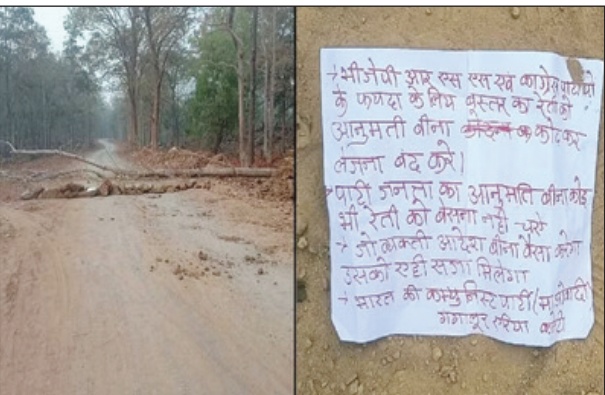 → भीजेपी आर एस एस एवं काग्रेस
के फयदा के लिय बस्तर का रेती को
आनुमती बीना खोद कर
लेजना बंद करे।
→ पार्टी जनता का आनुमति बीना कोइ
भी रेती को बेसना नही
→ जो व्यक्ती आदेश बीना बेसा
उसको एही सजा मिलेगा
→ भारत की कम्युनिस्ट पार्टी (माओवादी)
गंगालूर एरिया कमेटी